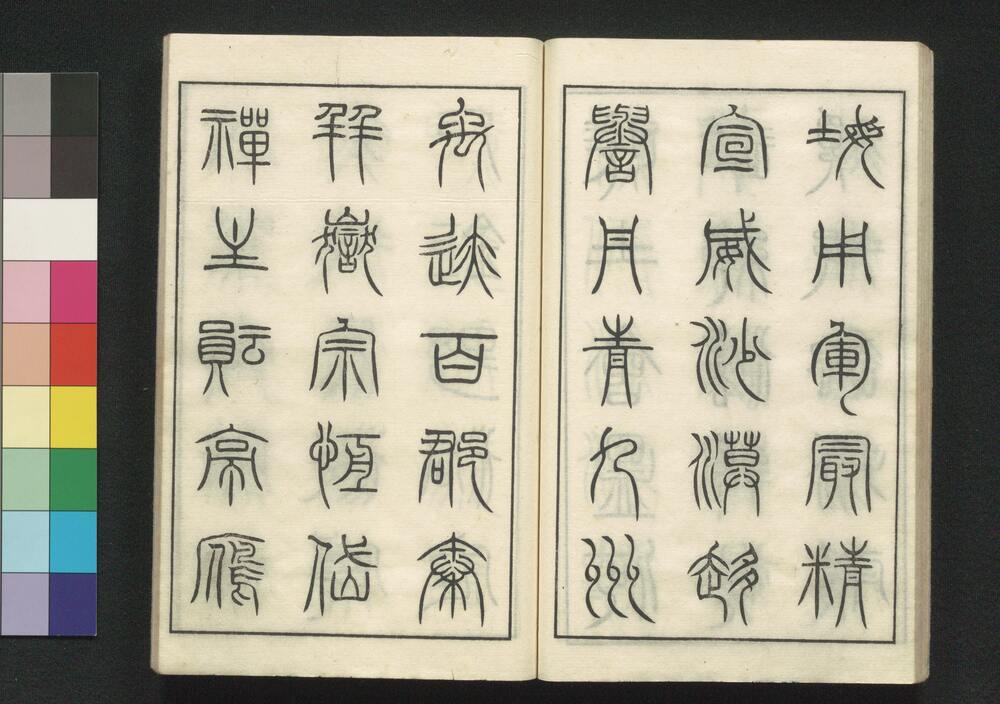 牧用軍最精
宣威沙漠馳
譽丹青九州
禹跡百郡秦
并嶽宗恒岱
禪主云亭雁